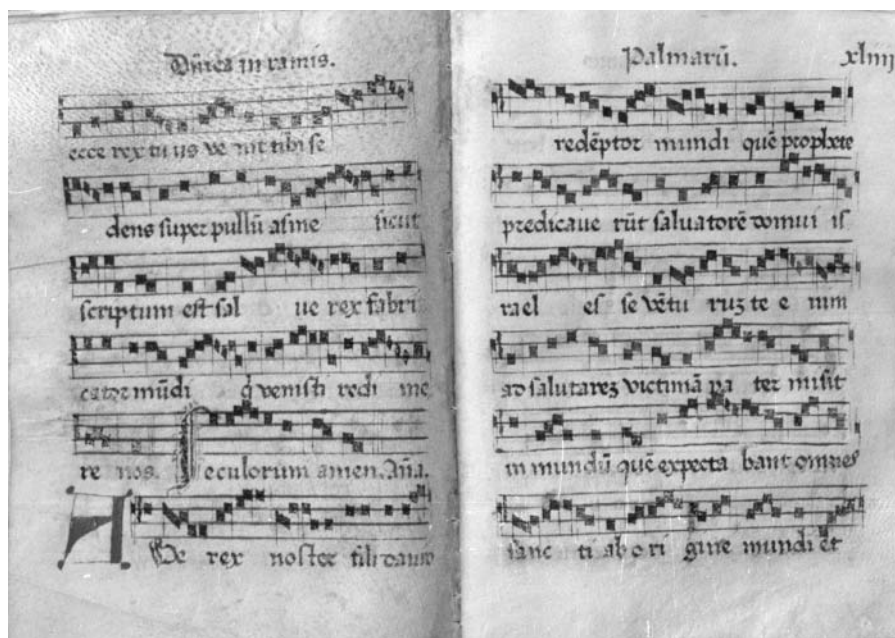 Dñica in ramis.
ecce rex tuus ve nit tibi se
dens super pullũ asine sicut
scriptum est sal ve rex fabri
cator mũdi q̃ venisti redi me
re nos. Seculorum amen. Aña.
AVe rex noster fili david
Palmarũ. xliiij
redẽptor mundi quẽ prophete
predicave rũt salvatorẽ domui is
rael es se vẽtu ruʒ te e nim
ad salutareʒ victimã pa ter misit
in mundũ quẽ expecta bant omnes
sanc ti ab o ri gine mundi et